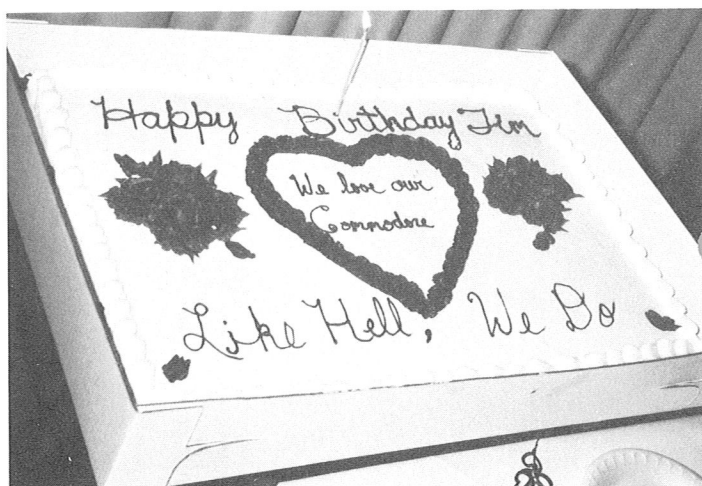 Happy Birthday Jim
We love our
Commodore
Like Hell, We Do